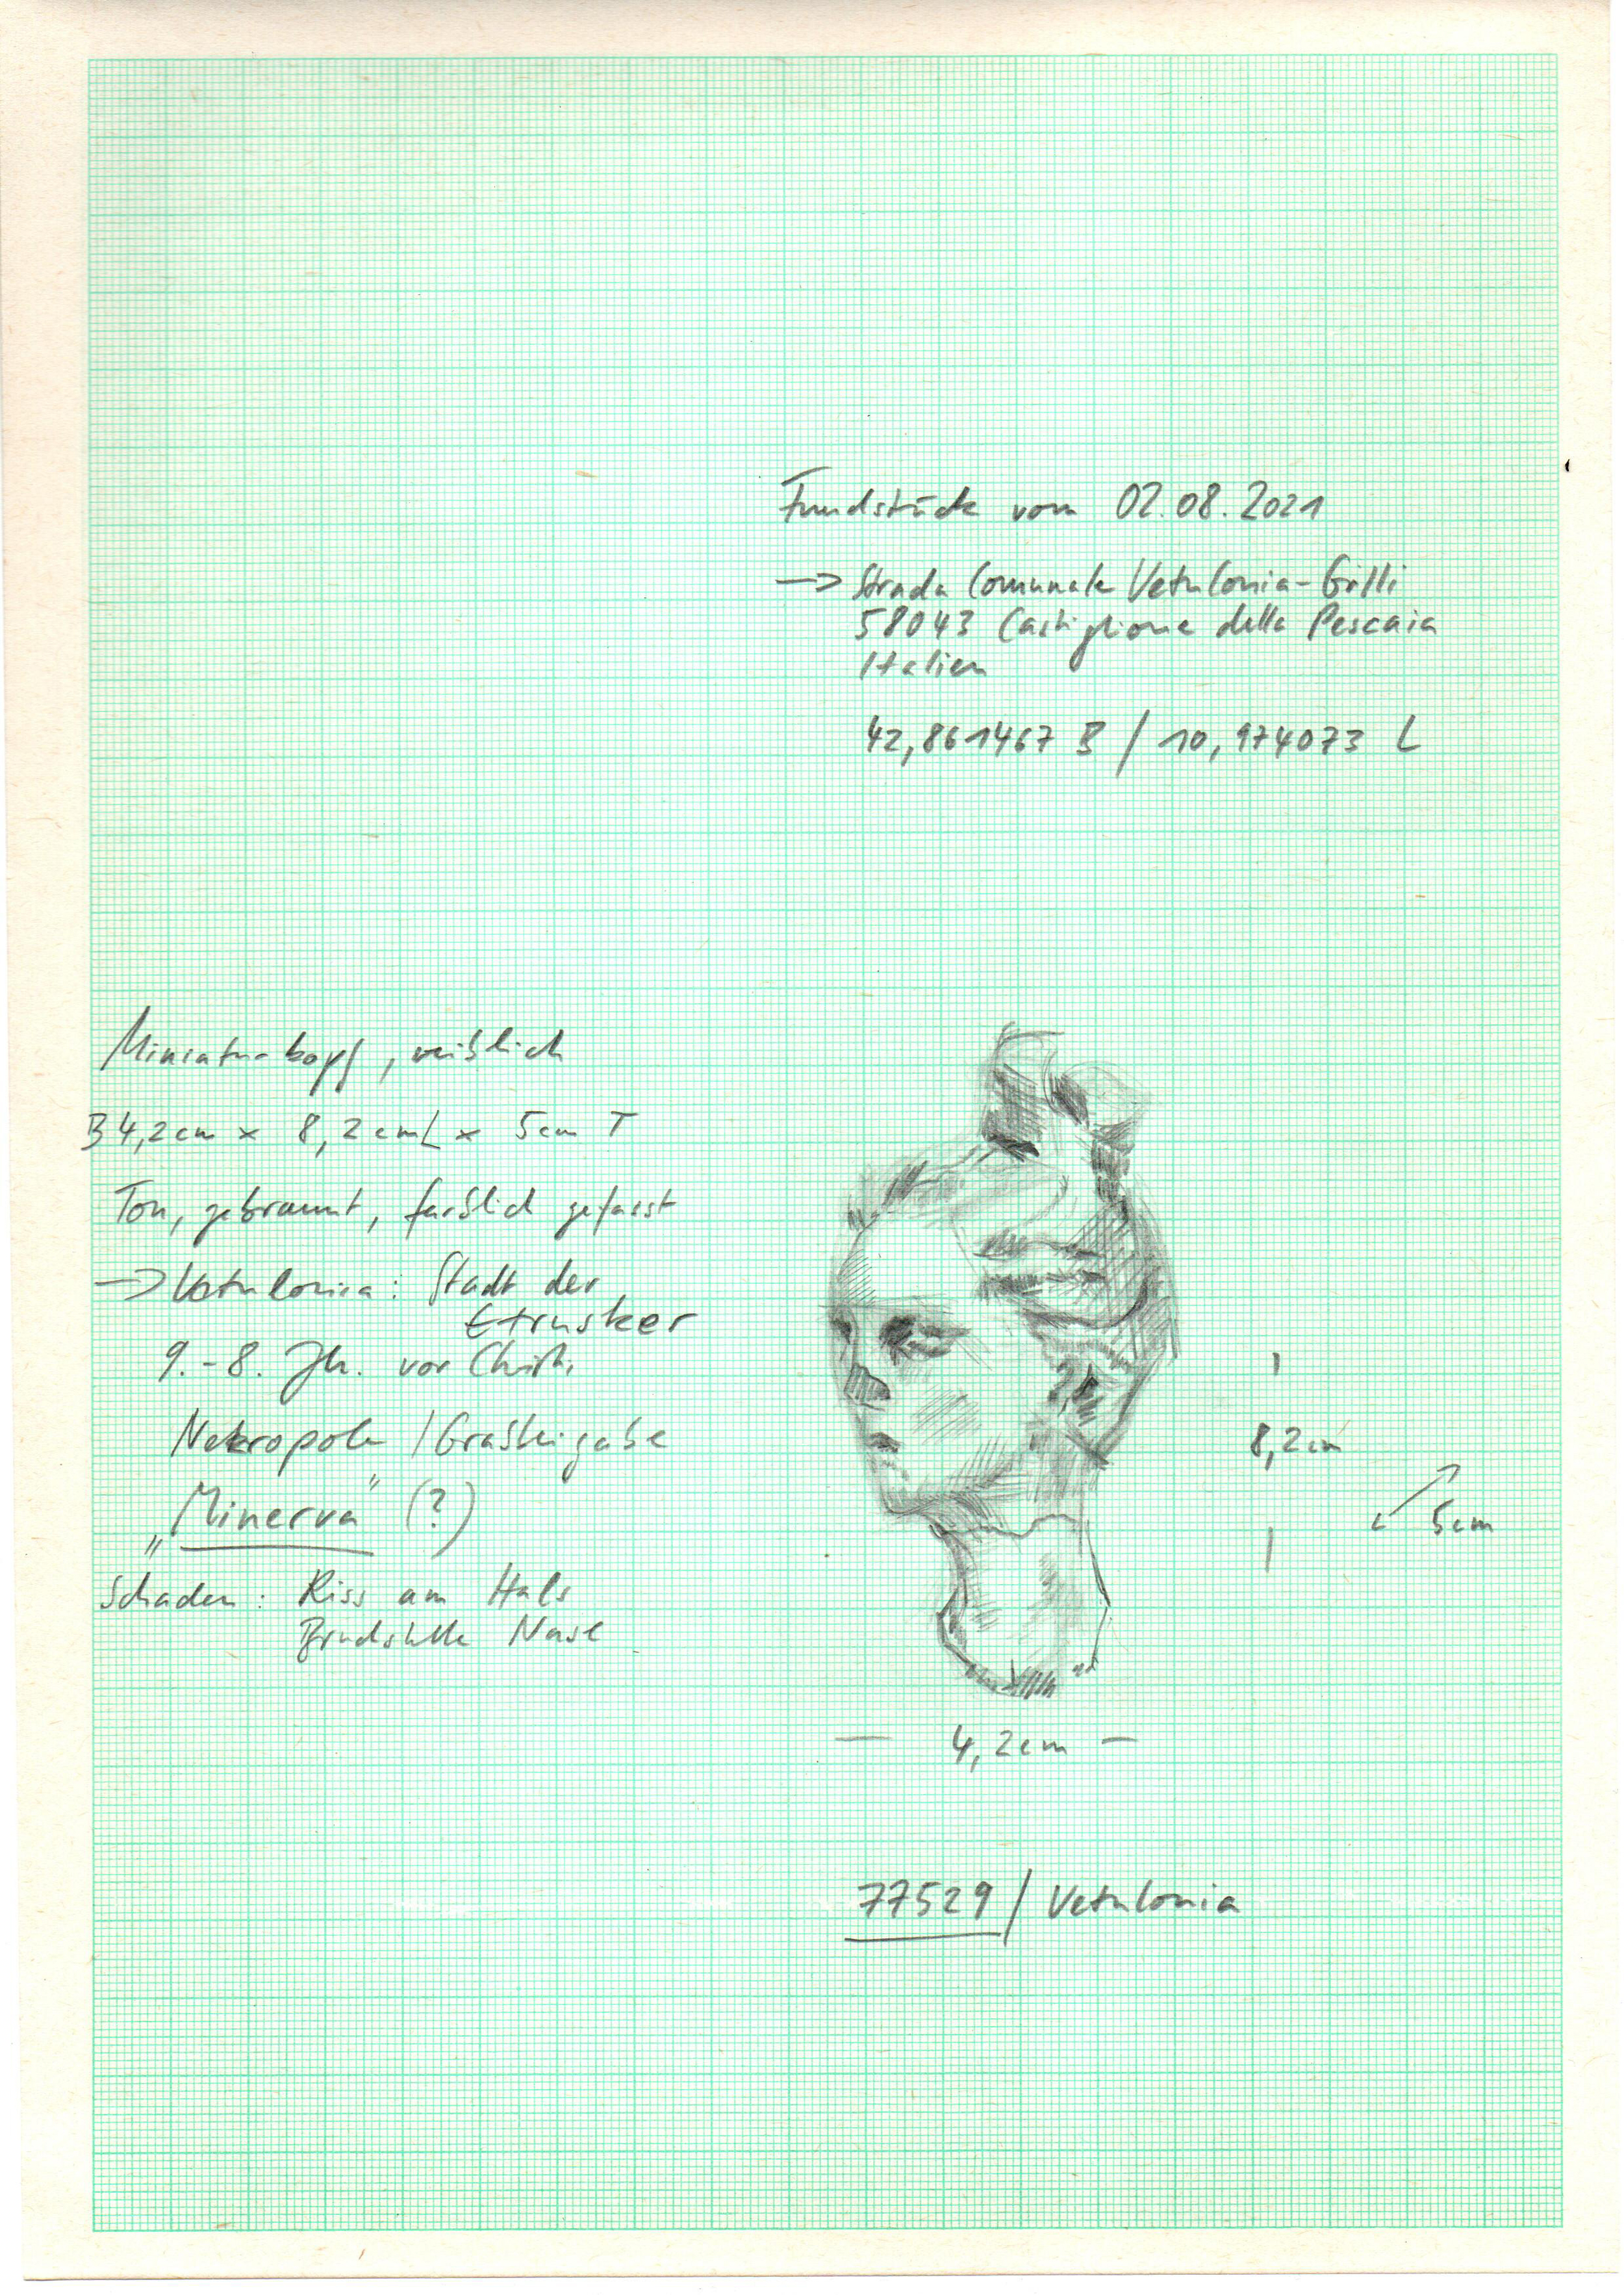 Fundstück vom 02.08.2021
→ Strada Comunale Vetulonia-Grilli
58043 Castiglione della Pescaia
Italien
42,861467 B / 10,974073 L
Miniaturkopf, weiblich
B 4,2cm x 8,2cm L x 5cm T
Ton, gebrannt, farblich gefasst
→ Vetulonia: Stadt der
Etrusker
9.-8. Jh. vor Christ.
Nekropole / Grabbeigabe
„Minerva" (?)
Schaden: Riss am Hals
Bruchstelle Nase
8,2cm
5cm
4,2cm
77529 / Vetulonia